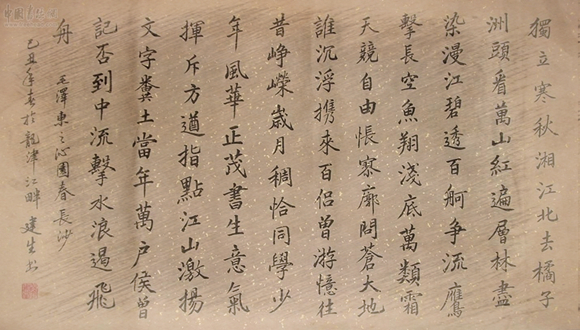 獨立寒秋湘江北去橘子
洲頭看萬山紅遍層林盡
染漫江碧透百舸爭流鷹
擊長空魚翔淺底萬類霜
天競自由悵寥廓問蒼大地
誰沉浮攜來百侶曾游憶往
昔崢嶸歲月稠恰同學少
年風華正茂書生意氣
揮斥方遒指點江山激揚
文字糞土當年萬戶侯曾
記否到中流擊水浪遏飛
舟 毛澤東之沁園春長沙
己丑年春於龍津江畔 建生書